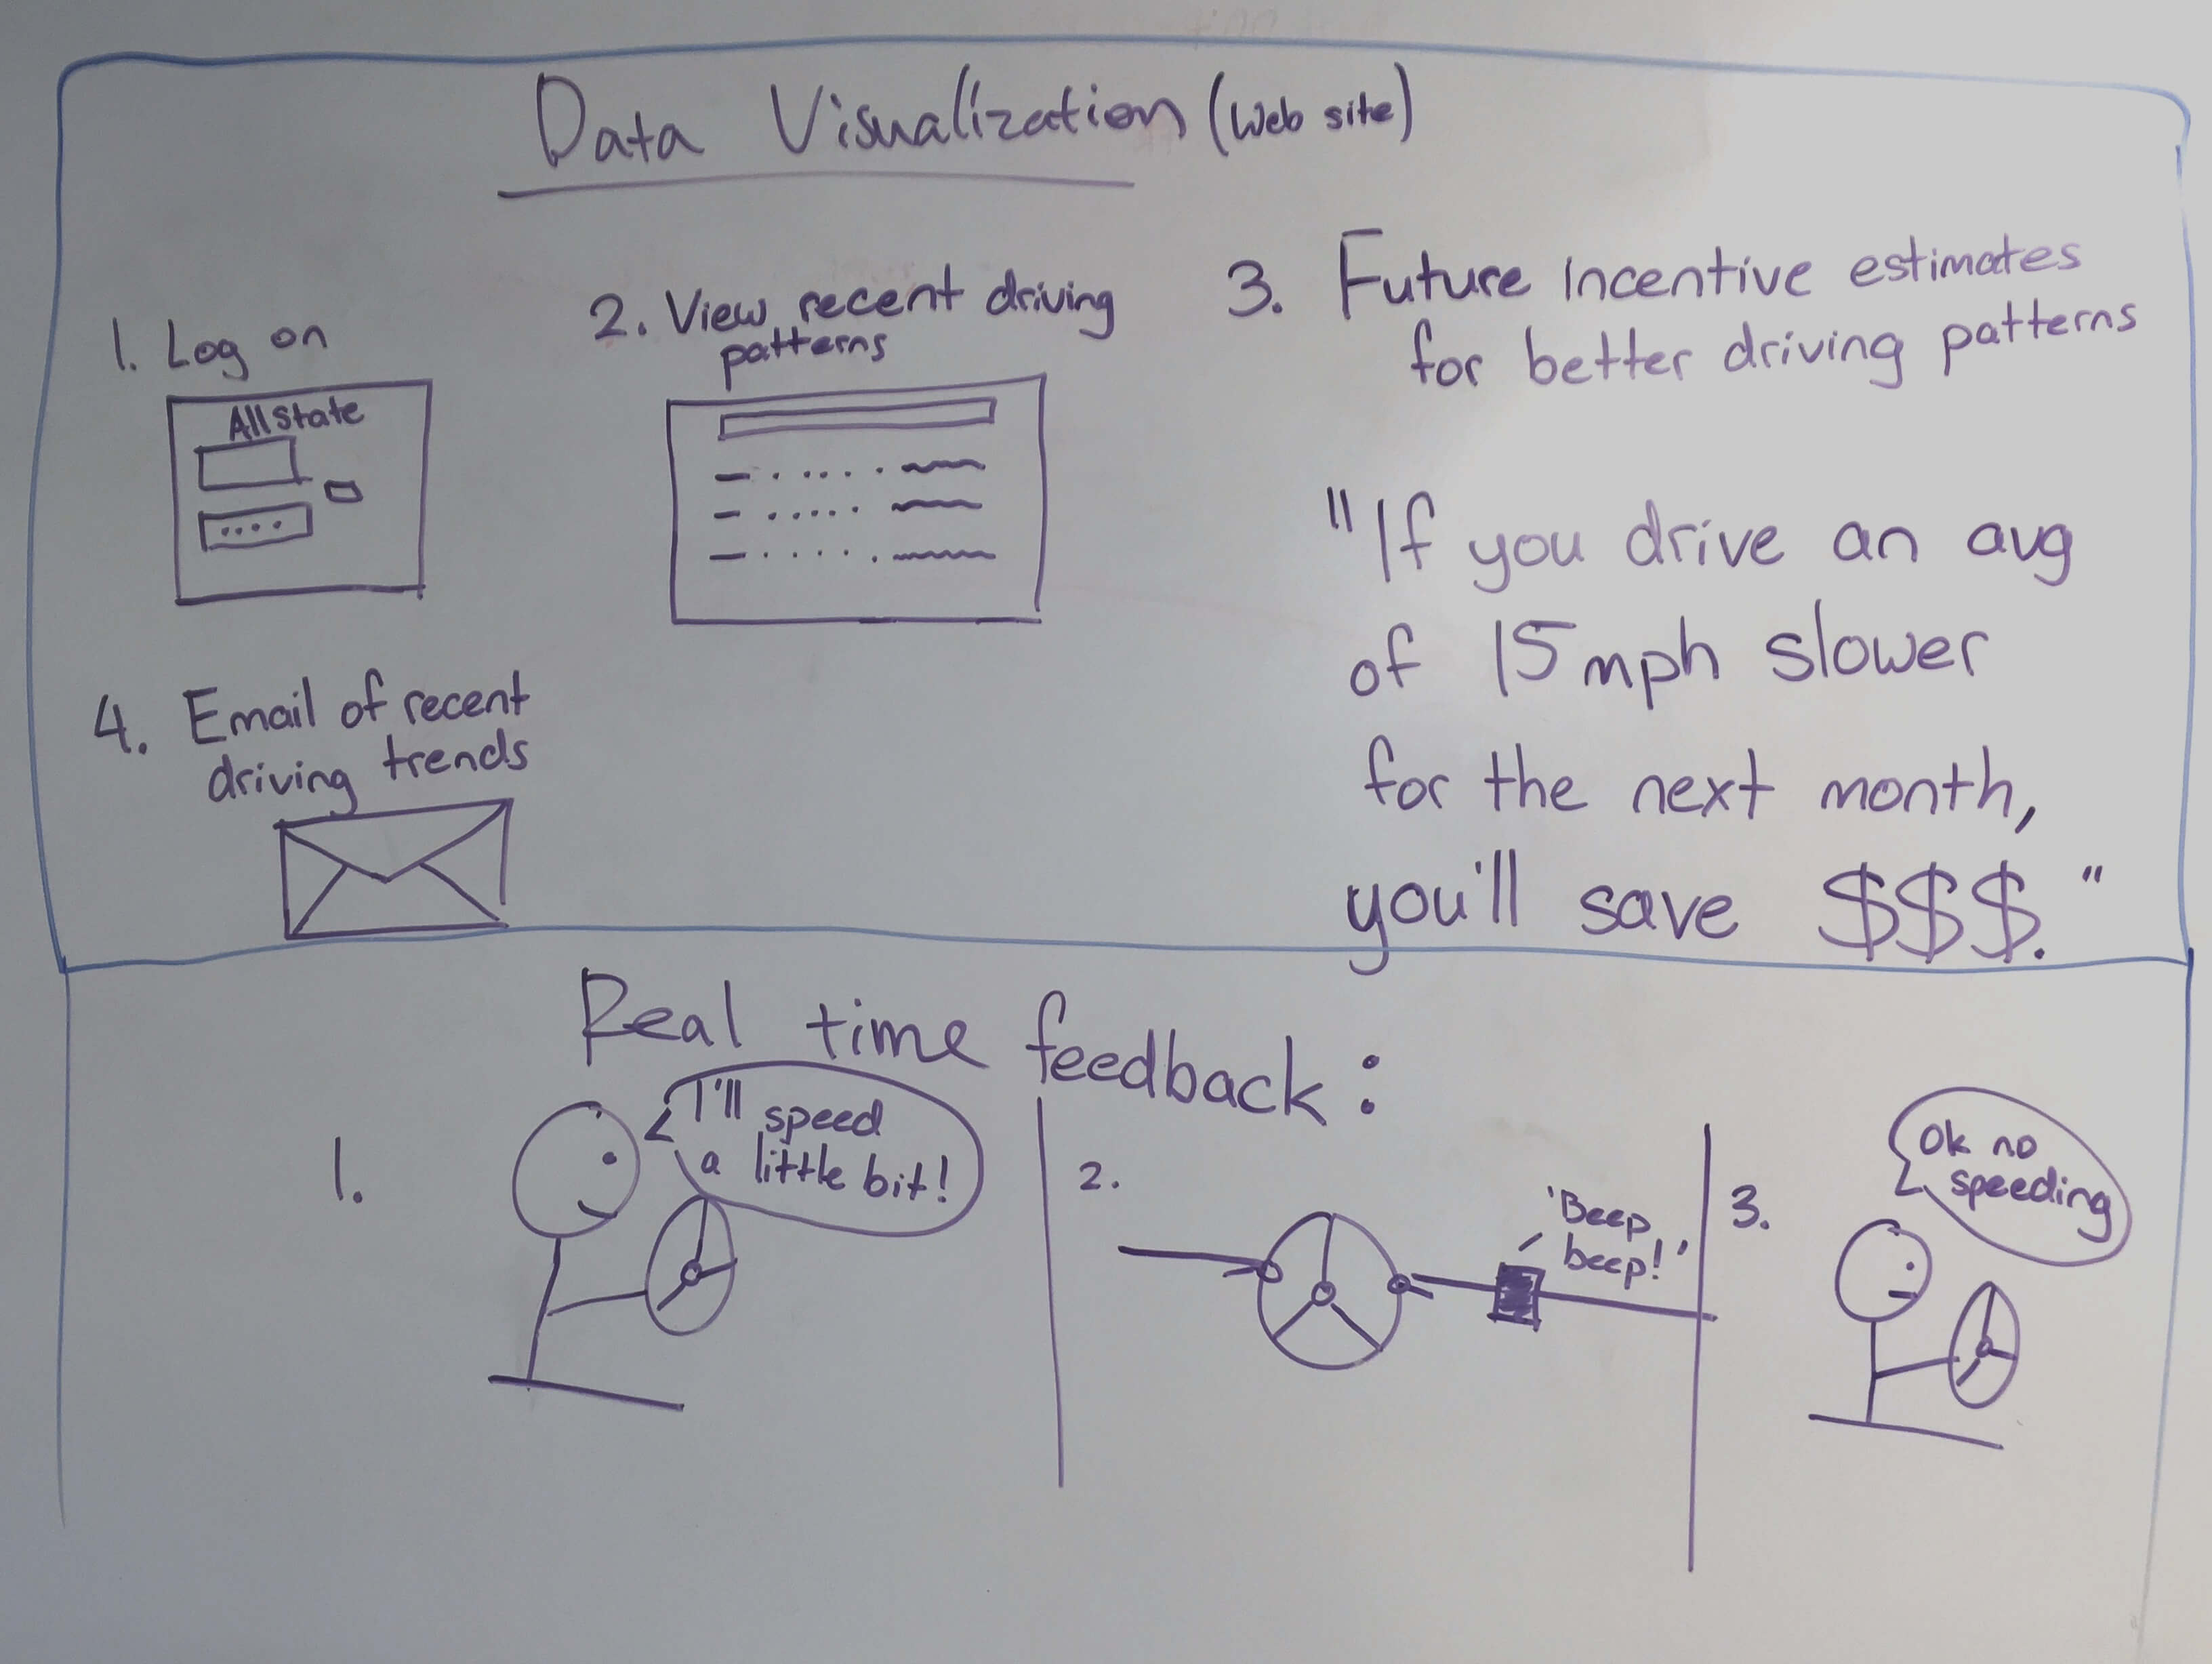 Data Visualization (Web site)
1. Log on
All state
2. View recent driving
patterns
3. Future incentive estimates
for better driving patterns
"If you drive an avg
of 15 mph slower
for the next month,
you'll save $$$."
4. Email of recent
driving trends
Real time feedback:
1.
I'll speed
a little bit!
2.
'Beep
beep!'
3.
Ok no
speeding